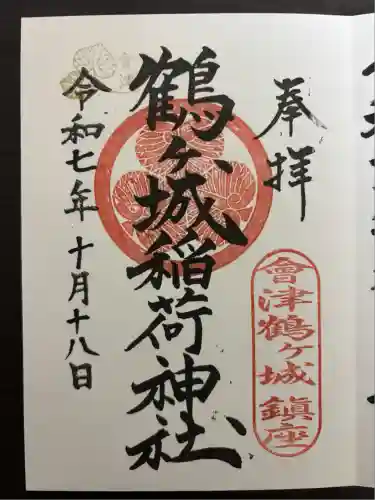 奉拝
會津鶴ヶ城鎮座
鶴ヶ城稲荷神社
令和七年十月十八日